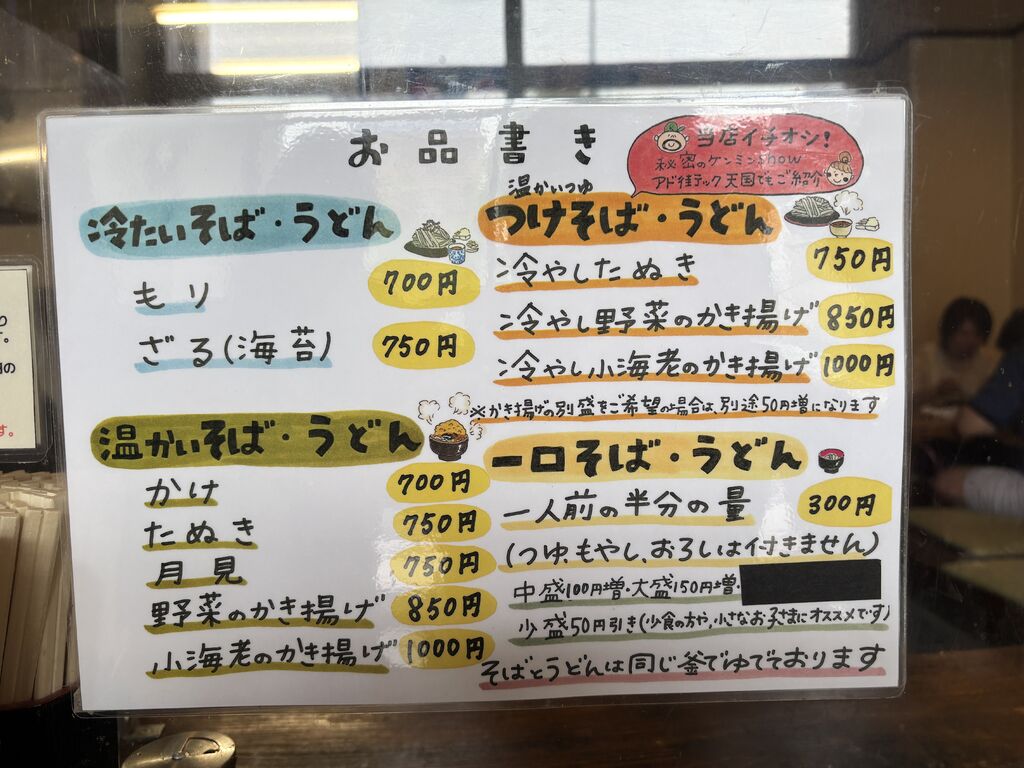 お品書き
当店イチオシ!
秘密のケンミンShow
アド街テック天国でもご紹介
冷たいそば・うどん
もり 700円
ざる(海苔) 750円
温かいそば・うどん
かけ 700円
たぬき 750円
月見 750円
野菜のかき揚げ 850円
小海老のかき揚げ 1000円
温かいつゆ
つけそば・うどん
冷やしたぬき 750円
冷やし野菜のかき揚げ 850円
冷やし小海老のかき揚げ 1000円
※かき揚げの別盛をご希望の場合は、別途50円増になります
一口そば・うどん
一人前の半分の量 300円
(つゆ、もやし、おろしは付きません)
中盛100円増・大盛150円増・
少盛50円引き(少食の方や、小さなお子さまにオススメです)
そばとうどんは同じ釜でゆでております
の
す。